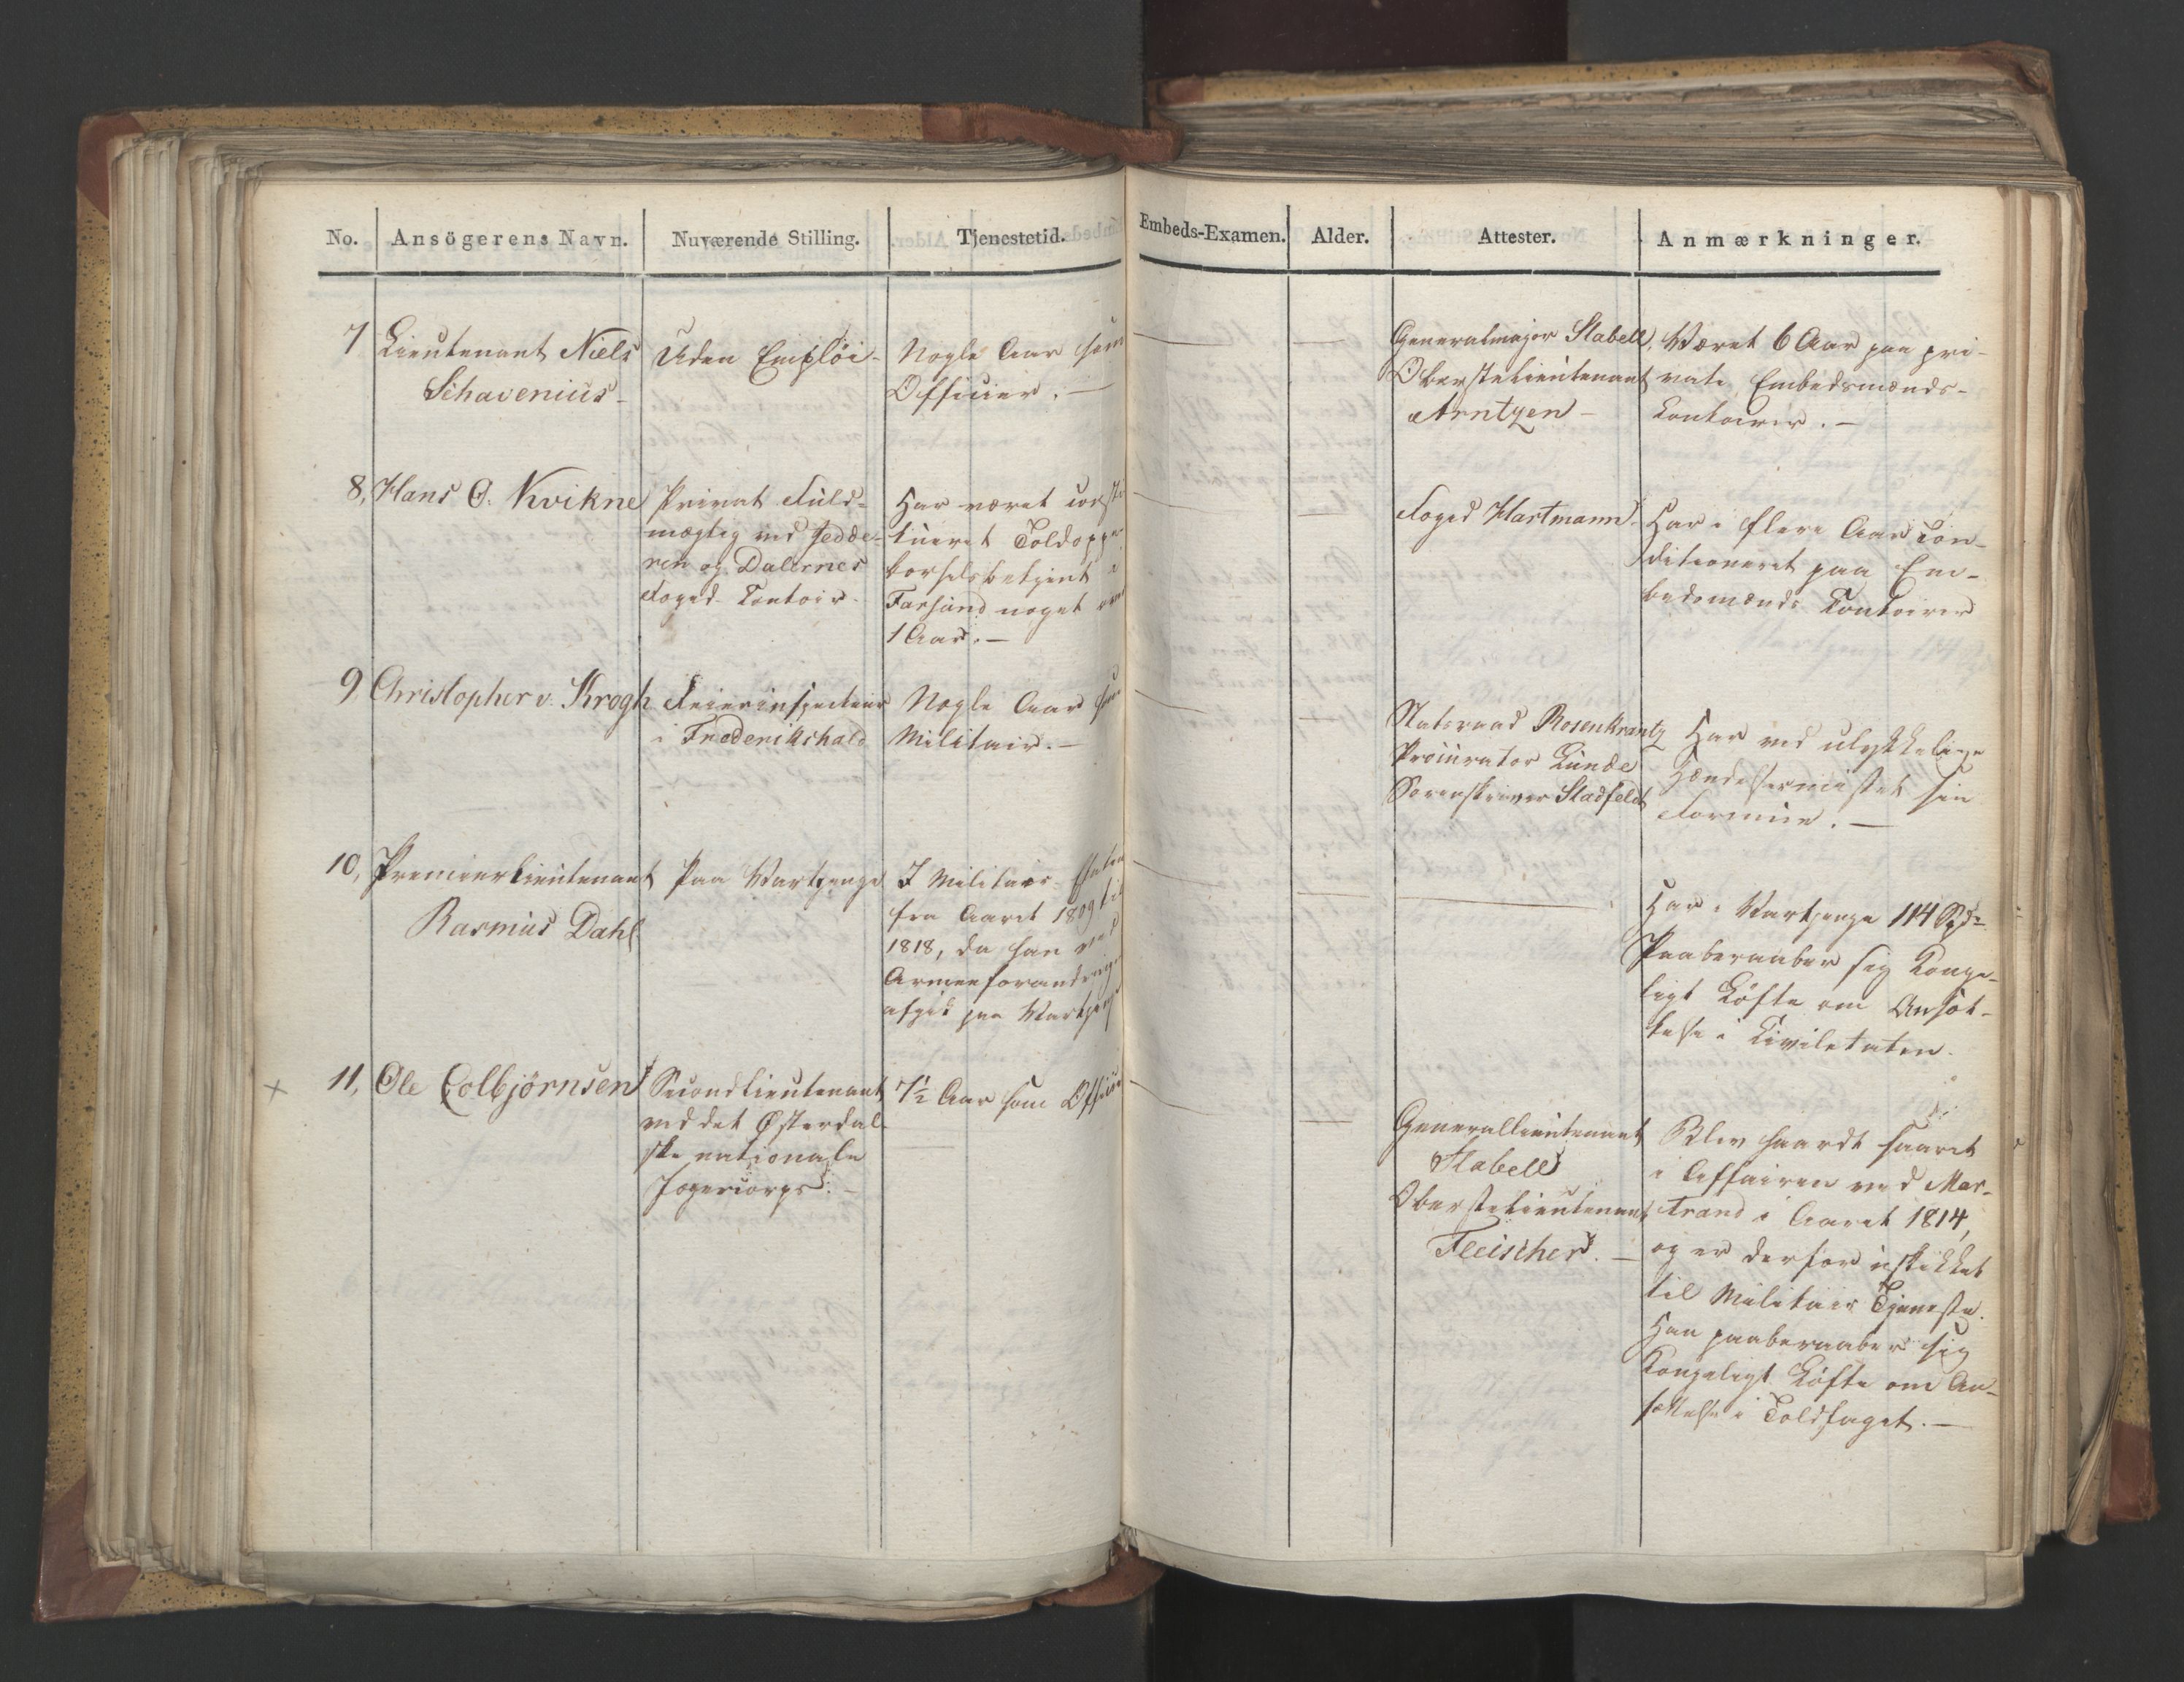 No. Ansögerens Navn. Nuværende Stilling. Tjenestetid. Embeds-Examen. Alder. Attester. Anmærkninger.
7 Lieutenant Niels
Schavenius
Uden Emplöi
Nogle Aar som
Officier.
Generalmajor Stabell,
Oberstelieutenant
Arntzen
Været 6 Aar paa pri-
vate Embedsmænds-
Contoirer.
8, Hans C. Kvikne
Privat Fuld-
mægtig ved Jedde-
ren og Dalernes
Foged Contoir
Har været const-
tueret Toldopp
borselsbetjent i
Farsund noget over
1 Aar.
Foged Hartmann
Har i flere Aar con-
ditioneret paa Em-
bedsmænds Contoirer
9, Christopher v. Krogh
Feierinspecteur
i Frederikshald
Nogle Aar som
Militair.
Statsraad Rosenkrantz
Procurator Lunde
Sorenskriver Stadfeldt
Har ved ulykkelige
Hændelser mistet sin
Formue.
10, Premierlieutenant
Rasmus Dahl
Paa Vartpenge
I Militair Etaten
fra Aaret 1809 til
1818, da han ved
Armeeforandringen
afgik paa Vartpenge
Har i Vartpenge 114 Spd
Paaberaaber sig Konge-
ligt Löfte om Ansæt-
telse i Civiletaten.
x 11, Ole Colbjörnsen
Secondlieutenant
ved det Østerdal-
ske nationale
Jægercorps.
7½ Aar som Officier
Generallieutenant
Stabell
Oberstelieutenant
Fleischer.
Blev haardt saaret
i Affairen ved Mar-
strand i Aaret 1814,
og er derfor uskikket
til Militair Tjeneste.
Han paaberaaber sig
Kongeligt Löfte om An-
sættelse i Toldfaget.